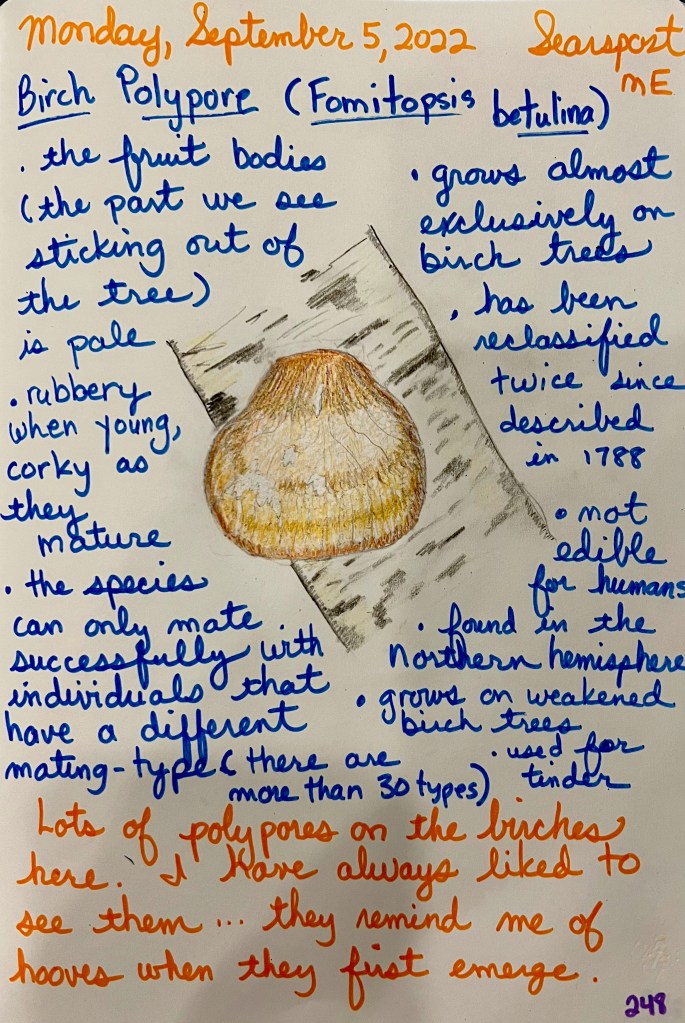 Monday, September 5, 2022 Searsport
ME
Birch Polypore (Fomitopsis betulina)
. the fruit bodies
(the part we see
sticking out of
the tree)
is pale
. rubbery
when young,
corky as
they
mature
. the species
can only mate
successfully with
individuals that
have a different
mating-type (there are
more than 30 types)
. grows almost
exclusively on
birch trees
. has been
reclassified
twice since
described
in 1788
. not
edible
for humans
. found in the
Northern hemisphere
. grows on weakened
birch trees
. used for
tinder
Lots of polypores on the birches
here. I have always liked to
see them ... they remind me of
hooves when they first emerge.
248